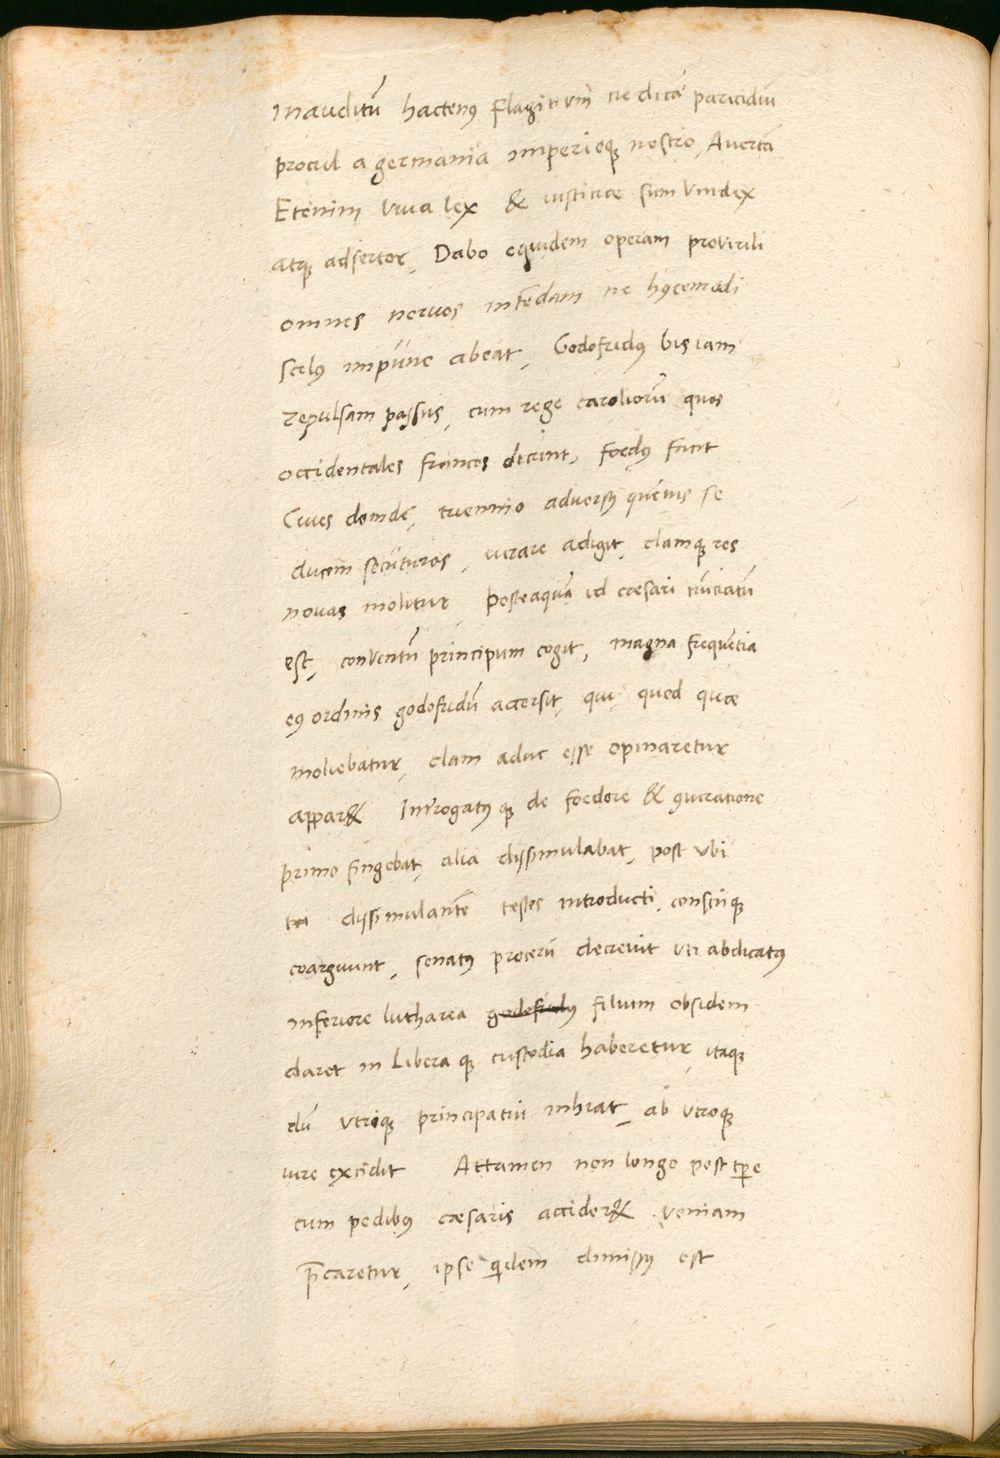 Inauditū hactenꝰ flagitium ne dicā paricidiū
procul a germania imperioqꝫ nostro, Auertā
Etenim viua lex & iusticiae sum vindex
atqꝫ adsertor, Dabo equidem operam provirili
omnes neruos intēdam ne hꝰcemodi
scelꝰ impune abeat, Godofridꝰ bis iam
repulsam passus, cum rege caroliorū quos
occidentales francos dicunt, foedꝰ facit
Ciues deindē, triennio adversꝰ quemvis se
ducem secuturos, iurare adigit, clamqꝫ res
novas molitur Posteaquā id caesari nūciatū
est, conventū principum cogit, magna frequētia
eꝰ ordinis godofridū accersit, qui quod quae
moliebatur, clam aduc esse opinaretur
appar& Inter̄rogatꝰ qꝫ de foedere & ꝯiuratione
primo fingebat, alia dissimulabat, post vbi
dissimulantē testes introducti, consciiqꝫ
coarguunt, senatꝰ procerū decrevit uti abdicatꝰ
inferiore lutharea godefridꝰ filium obsidem
daret in libera qꝫ custodia haberetur, itaqꝫ
dū vtriqꝫ principatui inhiat, ab vtroqꝫ
iure excidit Attamen non longo post tꝑe
cum pedibꝰ caesaris accider& veniam
p̄caretur, ipse qͥdem dimissꝰ est